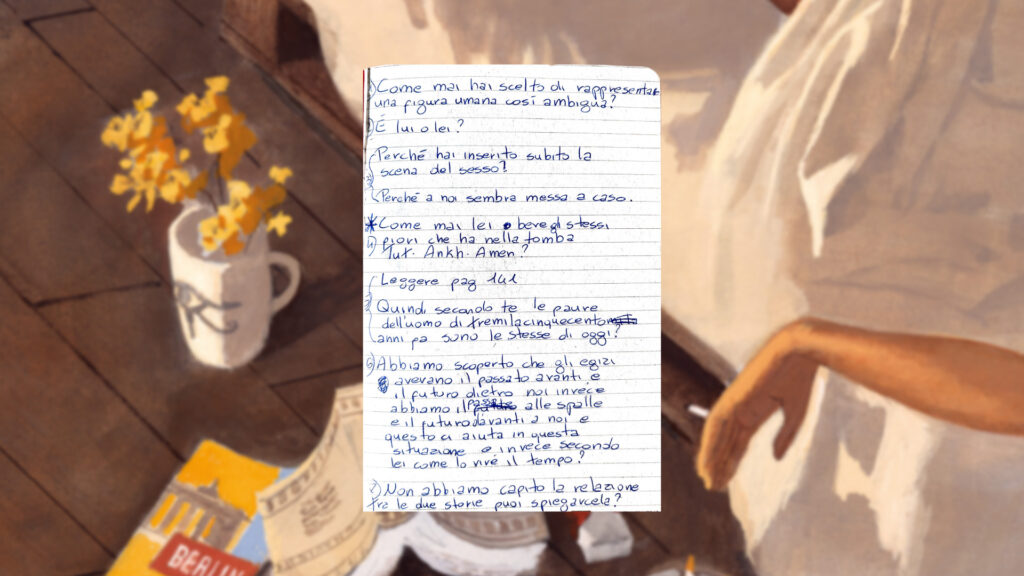 1) Come mai hai scelto di rappresentar
una figura umana così ambigua?
2) È lui o lei?
3) Perché hai inserito subito la
scena del sesso?
Perché a noi sembra messa a caso.
* Come mai lei beve gli stessi
4) fiori che ha nella tomba
Tut. Ankh. Amen?
Leggere pag 141
5) Quindi secondo te le paure
dell'uomo di tremilacinquecento
anni fa sono le stesse di oggi?
6) Abbiamo scoperto che gli egizi
avevano il passato avanti e
il futuro dietro noi invece
abbiamo il passato alle spalle
e il futuro davanti a noi e
questo ci aiuta in questa
situazione e invece secondo
lei come lo vive il tempo?
7) Non abbiamo capito la relazione
fre le due storie puoi spiegarcela?
BERLIN